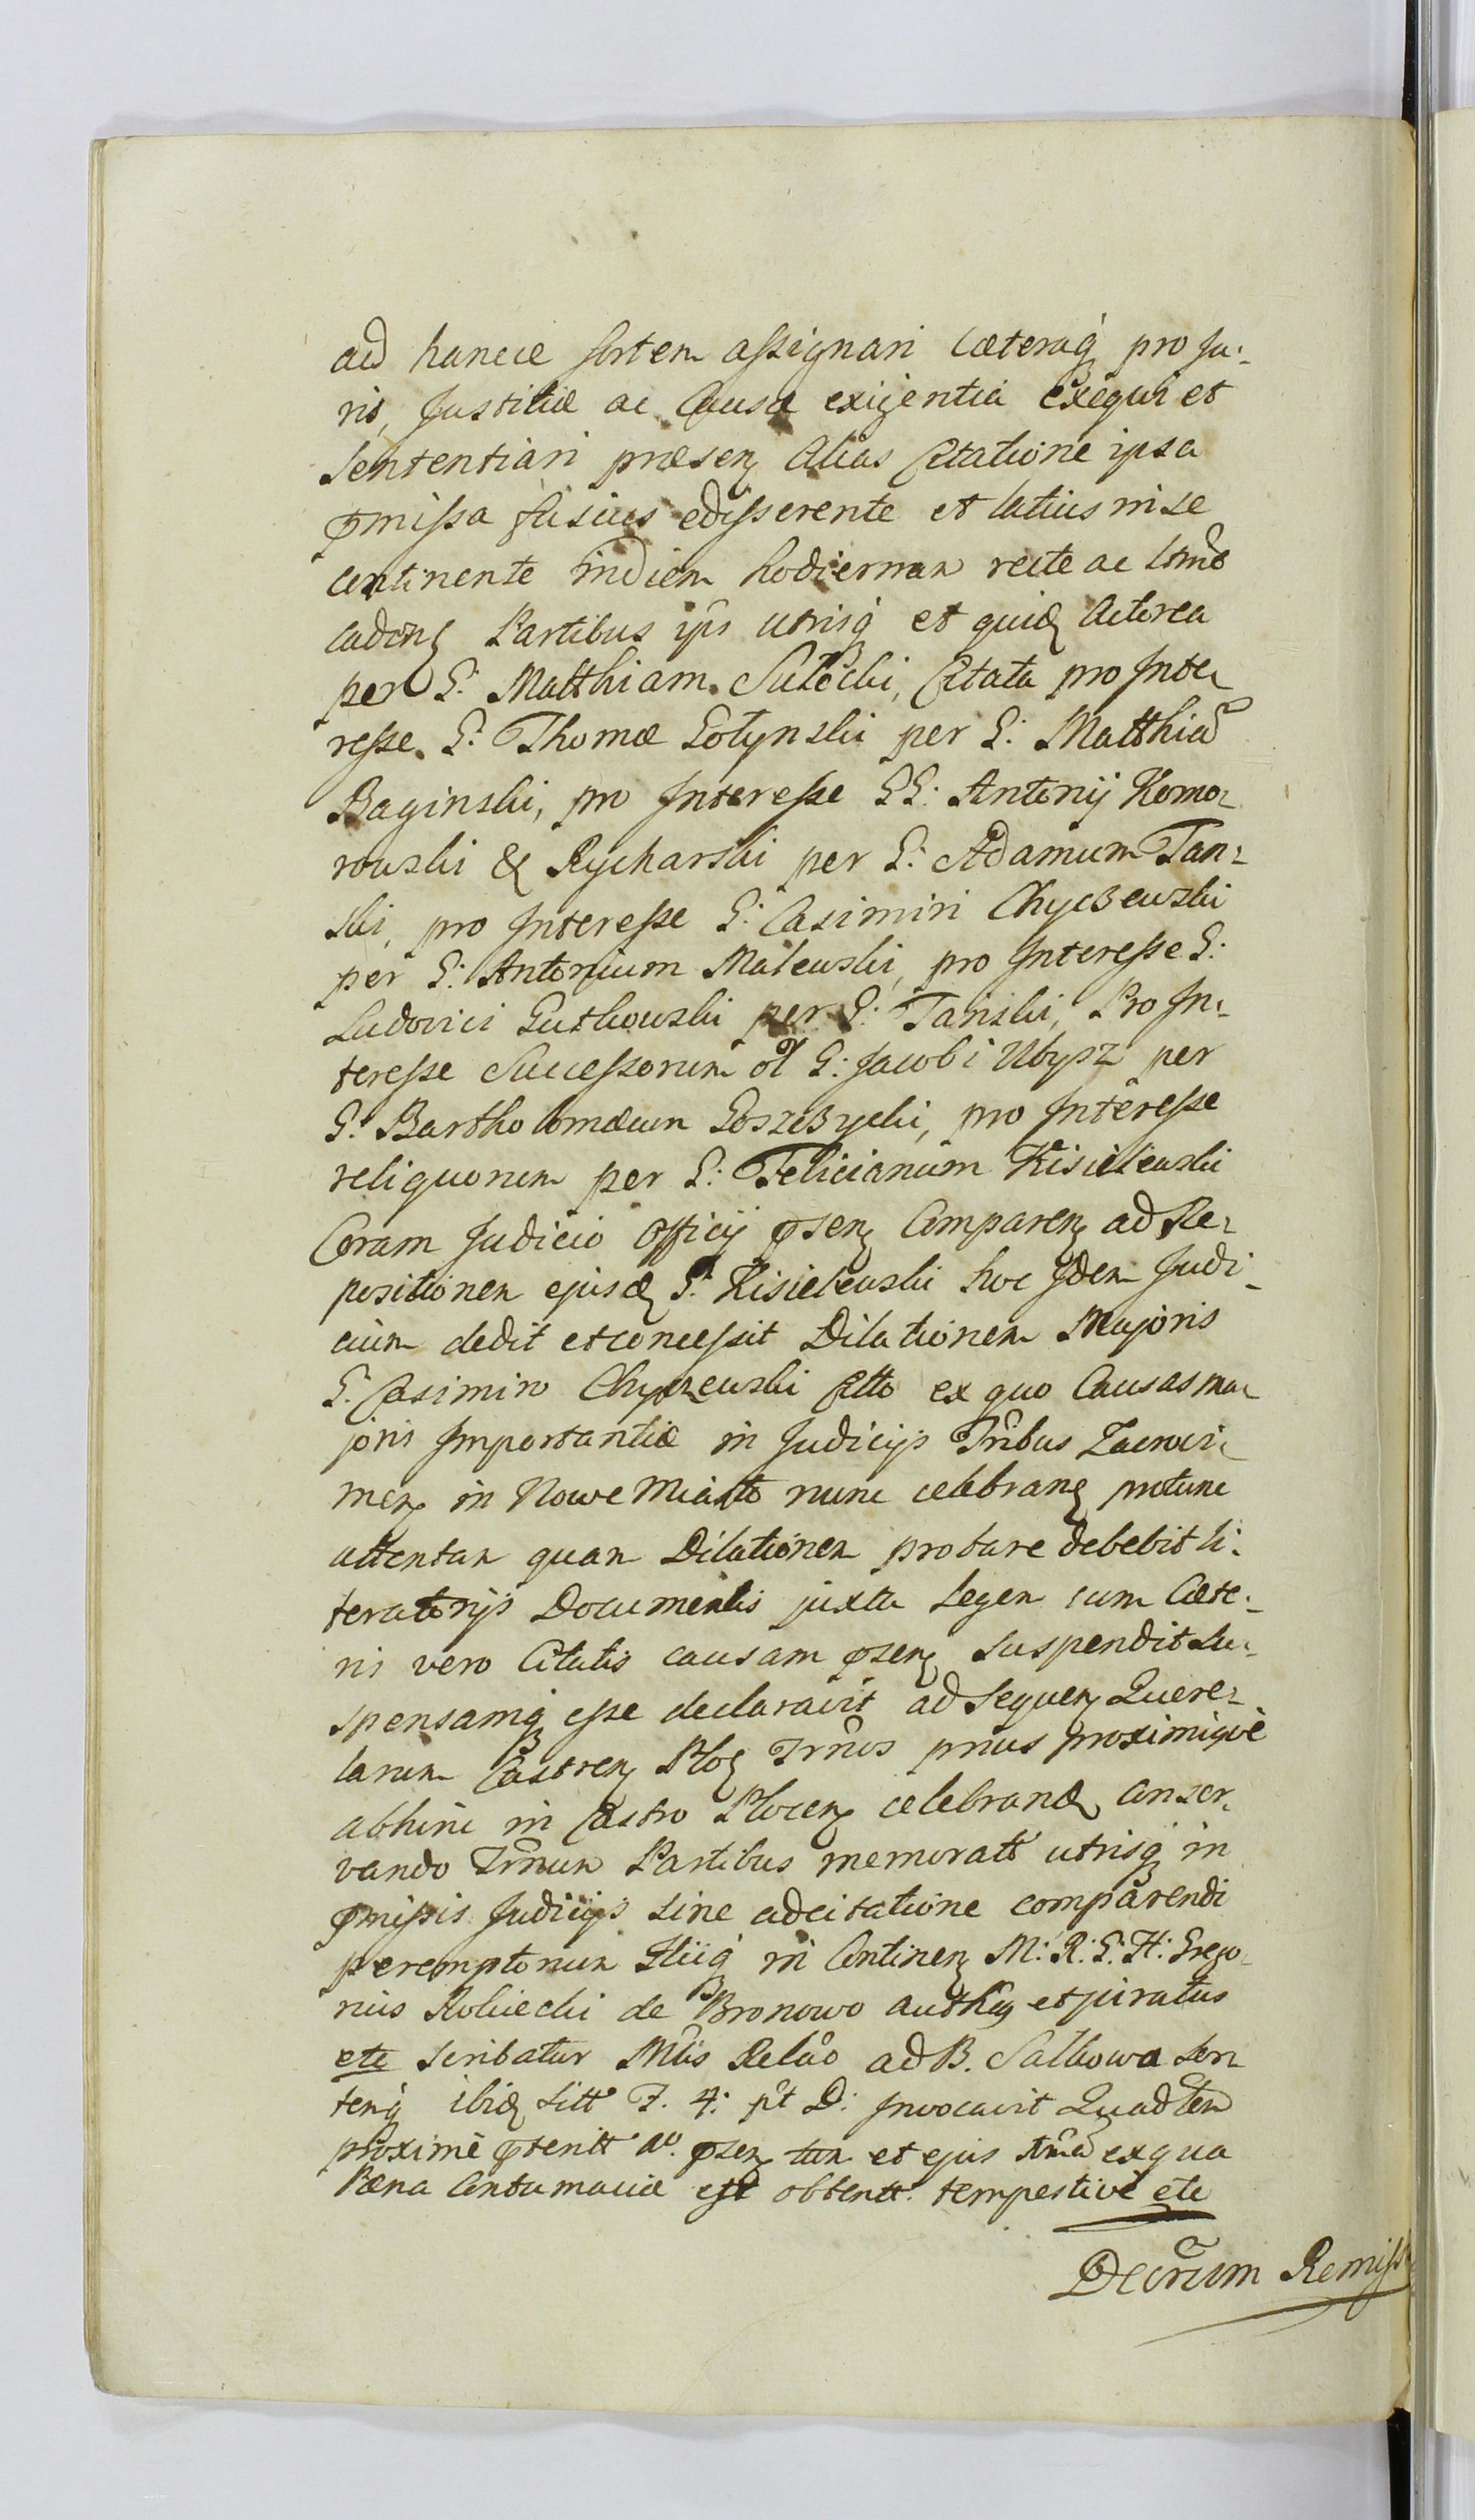 ad hancce sortem assignari caeteraq pro Ju-
ris, Justitiae ac Causae exigentia exequi et
sententiari praesen alias Citatione ipsa
pmissa fusius edisserente et latius in se
continente in diem hodiernam recte ac
caden Partibus ips utrisq et quid Actorea
per G: Matthiam Sutocki, Citata pro Inte-
resse G: Thomae Gołynski per G: Matthiam
Baginski, pro Interesse GG: Antonij Komo-
rowski & Rycharski per G: Adamum Tan-
ski, pro Interesse G: Casimiri Chyczewski
per G: Antonium Malewski, pro Interesse G:
Ludovici Gutkowski per G: Tański, Pro In-
teresse Successorum ol G: Jacobi Ubysz per
G: Bartholomaeum Goszczycki, pro Interesse
reliquorum per G: Felicianum Kisielewski
Coram Judicio Officij psen Comparen ad Re-
positionem ejusd G: Kisielewski hoc Idem Judi-
cium dedit et concessit Dilationem Majoris
G: Casimiro Chyczewski Citto ex quo Causas ma-
joris Importantiae in Judicijs Tribus Zacroci-
men in Nowe Miasto nunc celebran protunc
attentam quam Dilationem probare debebit li-
teratorijs Documentis juxta Legem cum Caete-
ris vero Citatis causam psen suspendit su-
spensamq esse declaravit ad sequen Quere-
larum Castren Ploc Trnos prius proximiqve
abhinc in Castro Plocen celebrand conser-
vando Trnum Partibus memoratt utrisq in
pmissis Judicijs sine adcitatione comparendi
peremptorium Itiiq in Continen M: R: G: H: Grego-
rius Rokicki de Bronowo et juratus
etc scribatur Mtis Relao ad B. Sałkowa sen-
tenq ibid sitt F. 4: pt D: Invocavit Quad ten
proxime ptenitt ao. psen tan et ejus ex qua
Paena Contumaciae est obtentt. tempestive etc
Decretum Remiss